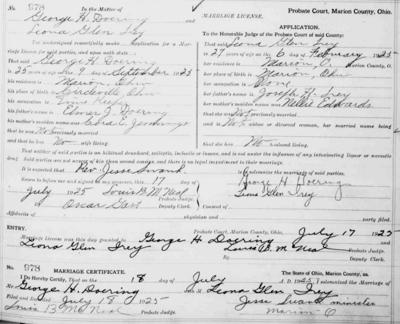 No. 978 In the Matter of
George H. Doering
and
Leona Glen Irey
MARRIAGE LICENSE.
Probate Court, Marion County, Ohio.
APPLICATION.
To the Honorable Judge of the Probate Court of said County:
The undersigned respectfully makes application for a Marriage License for said parties, and upon oath states:
That said George H. Doering
is 25 years of age
his residence is Marion, Ohio
his place of birth is Circleville Ohio
his occupation is Time Keeper
his father's name is Elmer J. Doering
his mother's maiden name was Cora E. Jennings
that he was No previously married
and that he has No wife living
That said Leona Glen Irey
is 27 years of age on the 6 day of February 1925
her residence is Marion, O.
her place of birth is Marion, Ohio
her occupation is None
her father's name is Joseph H. Irey
her mother's maiden name was Nellie Edwards
that she was Not previously married
and is No a widow or divorced woman, her married name being
that she has No husband living
That neither of said parties is an habitual drunkard, epileptic, imbecile or insane, and is not under the influence of any intoxicating liquor or narcotic drug. Said parties are not nearer of kin than second cousins, and there is no legal impediment to their marriage.
It is expected that Rev. Jesse Swank is to solemnize the marriage of said parties.
Sworn to before me and signed in my presence, this 17 day of
July 1925 Louis B. McNeal Probate Judge.
George H Doering
Leona Glen Irey
Oscar Gast Deputy Clerk.
ENTRY. Probate Court, Marion County, Ohio, July 17 1925
Marriage License was this day granted to George H. Doering
and Leona Glen Irey Louis B. McNeal Probate Judge.
Deputy Clerk.
No. 978 MARRIAGE CERTIFICATE. The State of Ohio, Marion County, ss.
I Do Hereby Certify, That on the 18 day of July A. D. 1925 I solemnized the Marriage of
Mr. George H. Doering and M Leona Glen Irey
Filed and Recorded July 18 1925 Jesse Swank minister
Louis B McNeal Marion O